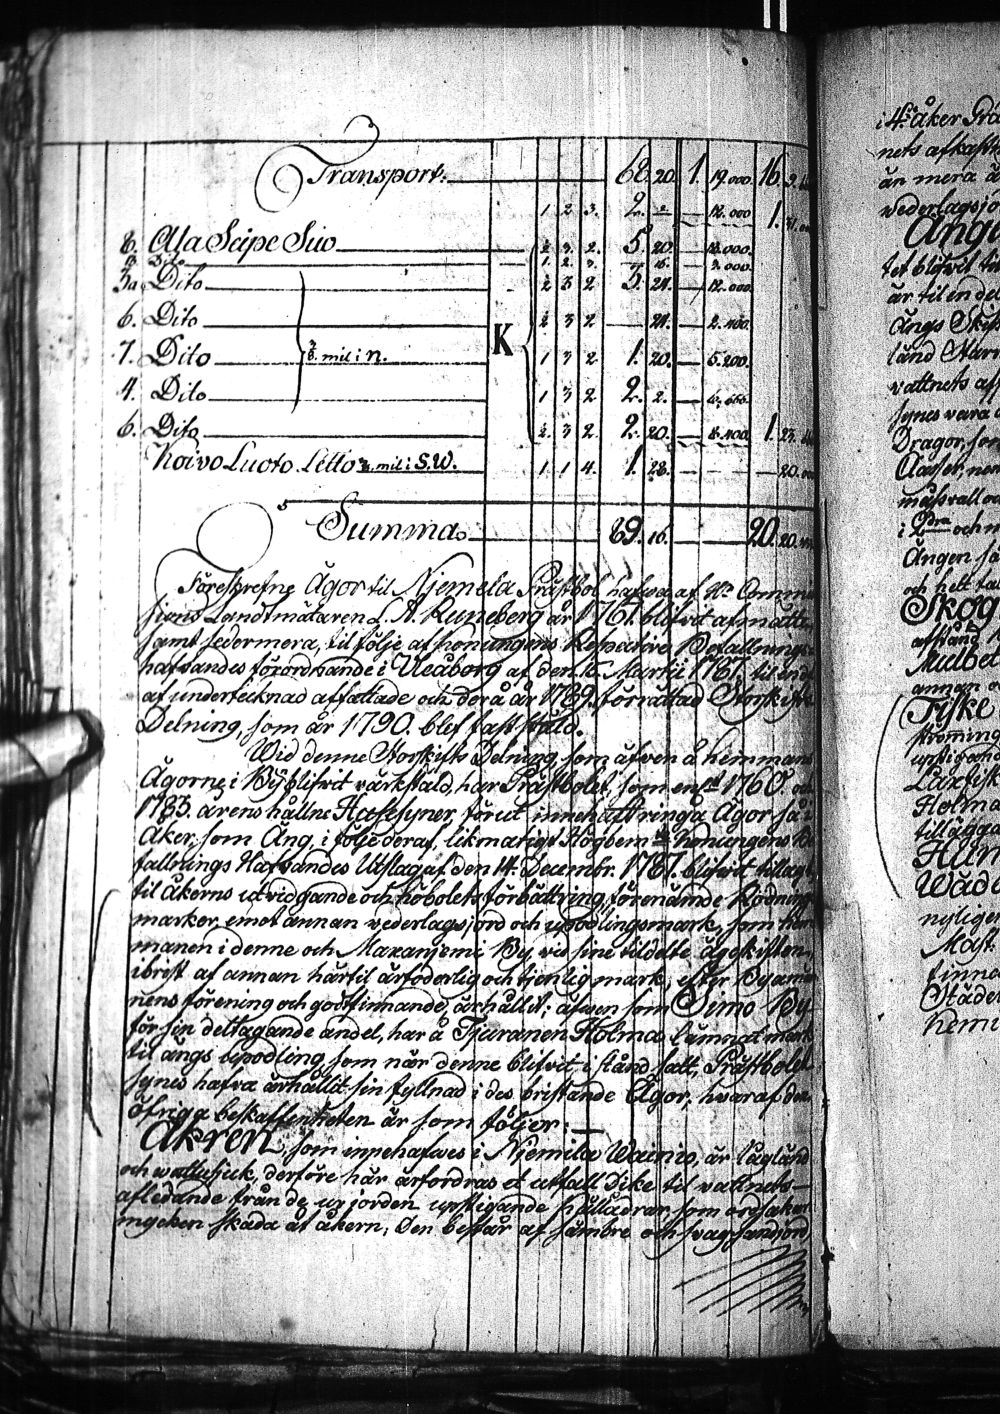 Transport. 68. 20. 1. 19.000. 16
1. 2 3. 2. 12.000 1.
8. Ala Seipe Suo 2 3 2. 5. 20.
Dito 1. 2. 3. 16.
5a Dito 2 3 2 5. 24. 12.000.
6. Dito 2 3 2 24. 2.400.
7. Dito mil i n. K 1 3 2 1. 20. 5.200.
4. Dito 1 3 2 2. 2.
6. Dito 2. 3 2 2. 20. 8.400. 1. 23.
Koivo Luoto Letto mil i S.W. 1. 1 4. 1. 28. 20.
Summa. 89. 16. 20. 20.
Föreskrefne Ägor til Njemela Prästbol hafva af Commi
sions Landtmätaren L. A. Runeberg år 1767. blifvit afmätte,
samt sedermera, til följe af Konungens Befallnings
hafvandes förordnande i Uleåborg af den 16. Martii 1787, til en del
af undertecknad affattade och derå år 1789. förrättad Storskifts
Delning, som år 1790. blef fastställd.
Wid denne Storskifts Delning, som äfven å hemmans
Ägorne i Byn blifvit värkstäld, har Prästbolet, som enl 1760. och
1783. årens hållne Husesyner förut innehaft ringa Ägor så i
Åker, som Äng, i följe deraf, likmätigt Högbem Konungens Be
fallnings Hafvandes Utslag af den 14. Decembr. 1787. blifvit tillagt
til åkerns utvidgande och höbolets förbättring, förenämde Rödnings
marker, emot annan vederlagsjord och upodlingsmark, som hem
manen i denne och Maxanjemi By, vid sine tildelte ägoskiften,
i brist af annan härtil ärfoderlig och tjenlig mark, efter Byamän
nens förening och godtfinnande, ärhållit; äfven som Simo By,
för sin deltagande andel, har å Tjuranen Holma lämnat mark
til ängs upodling, som när denne blifvit i stånd satt, Prästbolet
synes hafva ärhållit sin fyllnad i des bristande Ägor, hvaraf den
öfriga beskaffenheten är som följer:
Åkren, som innehafves i Njemila Wainio, är lågländ
och vattusjuck, derföre här ärfordras et utfall dike til vattnets
afledande från de ur jorden upstigande källådrar, som ordsakar
mycken skada åt åkern, Den består af sämbre och svag sandjord,
i 4 åker Grä
nets afkast
än mera
vederlagsjo
Änge
tet blifvit
är til en del
Ängs Skif
länd Star
vattnets af
synes vara
Dragor, som
Classer, nem
måssvall
i 2dra och
Ängen
och helt
Skog
afstånd
Mulbet
annan
Fiske
strömming
upstigand
Laxfisk
Holma
tillägga
Hum
Wäd
nyligen
Mast
finne
Städer
hem